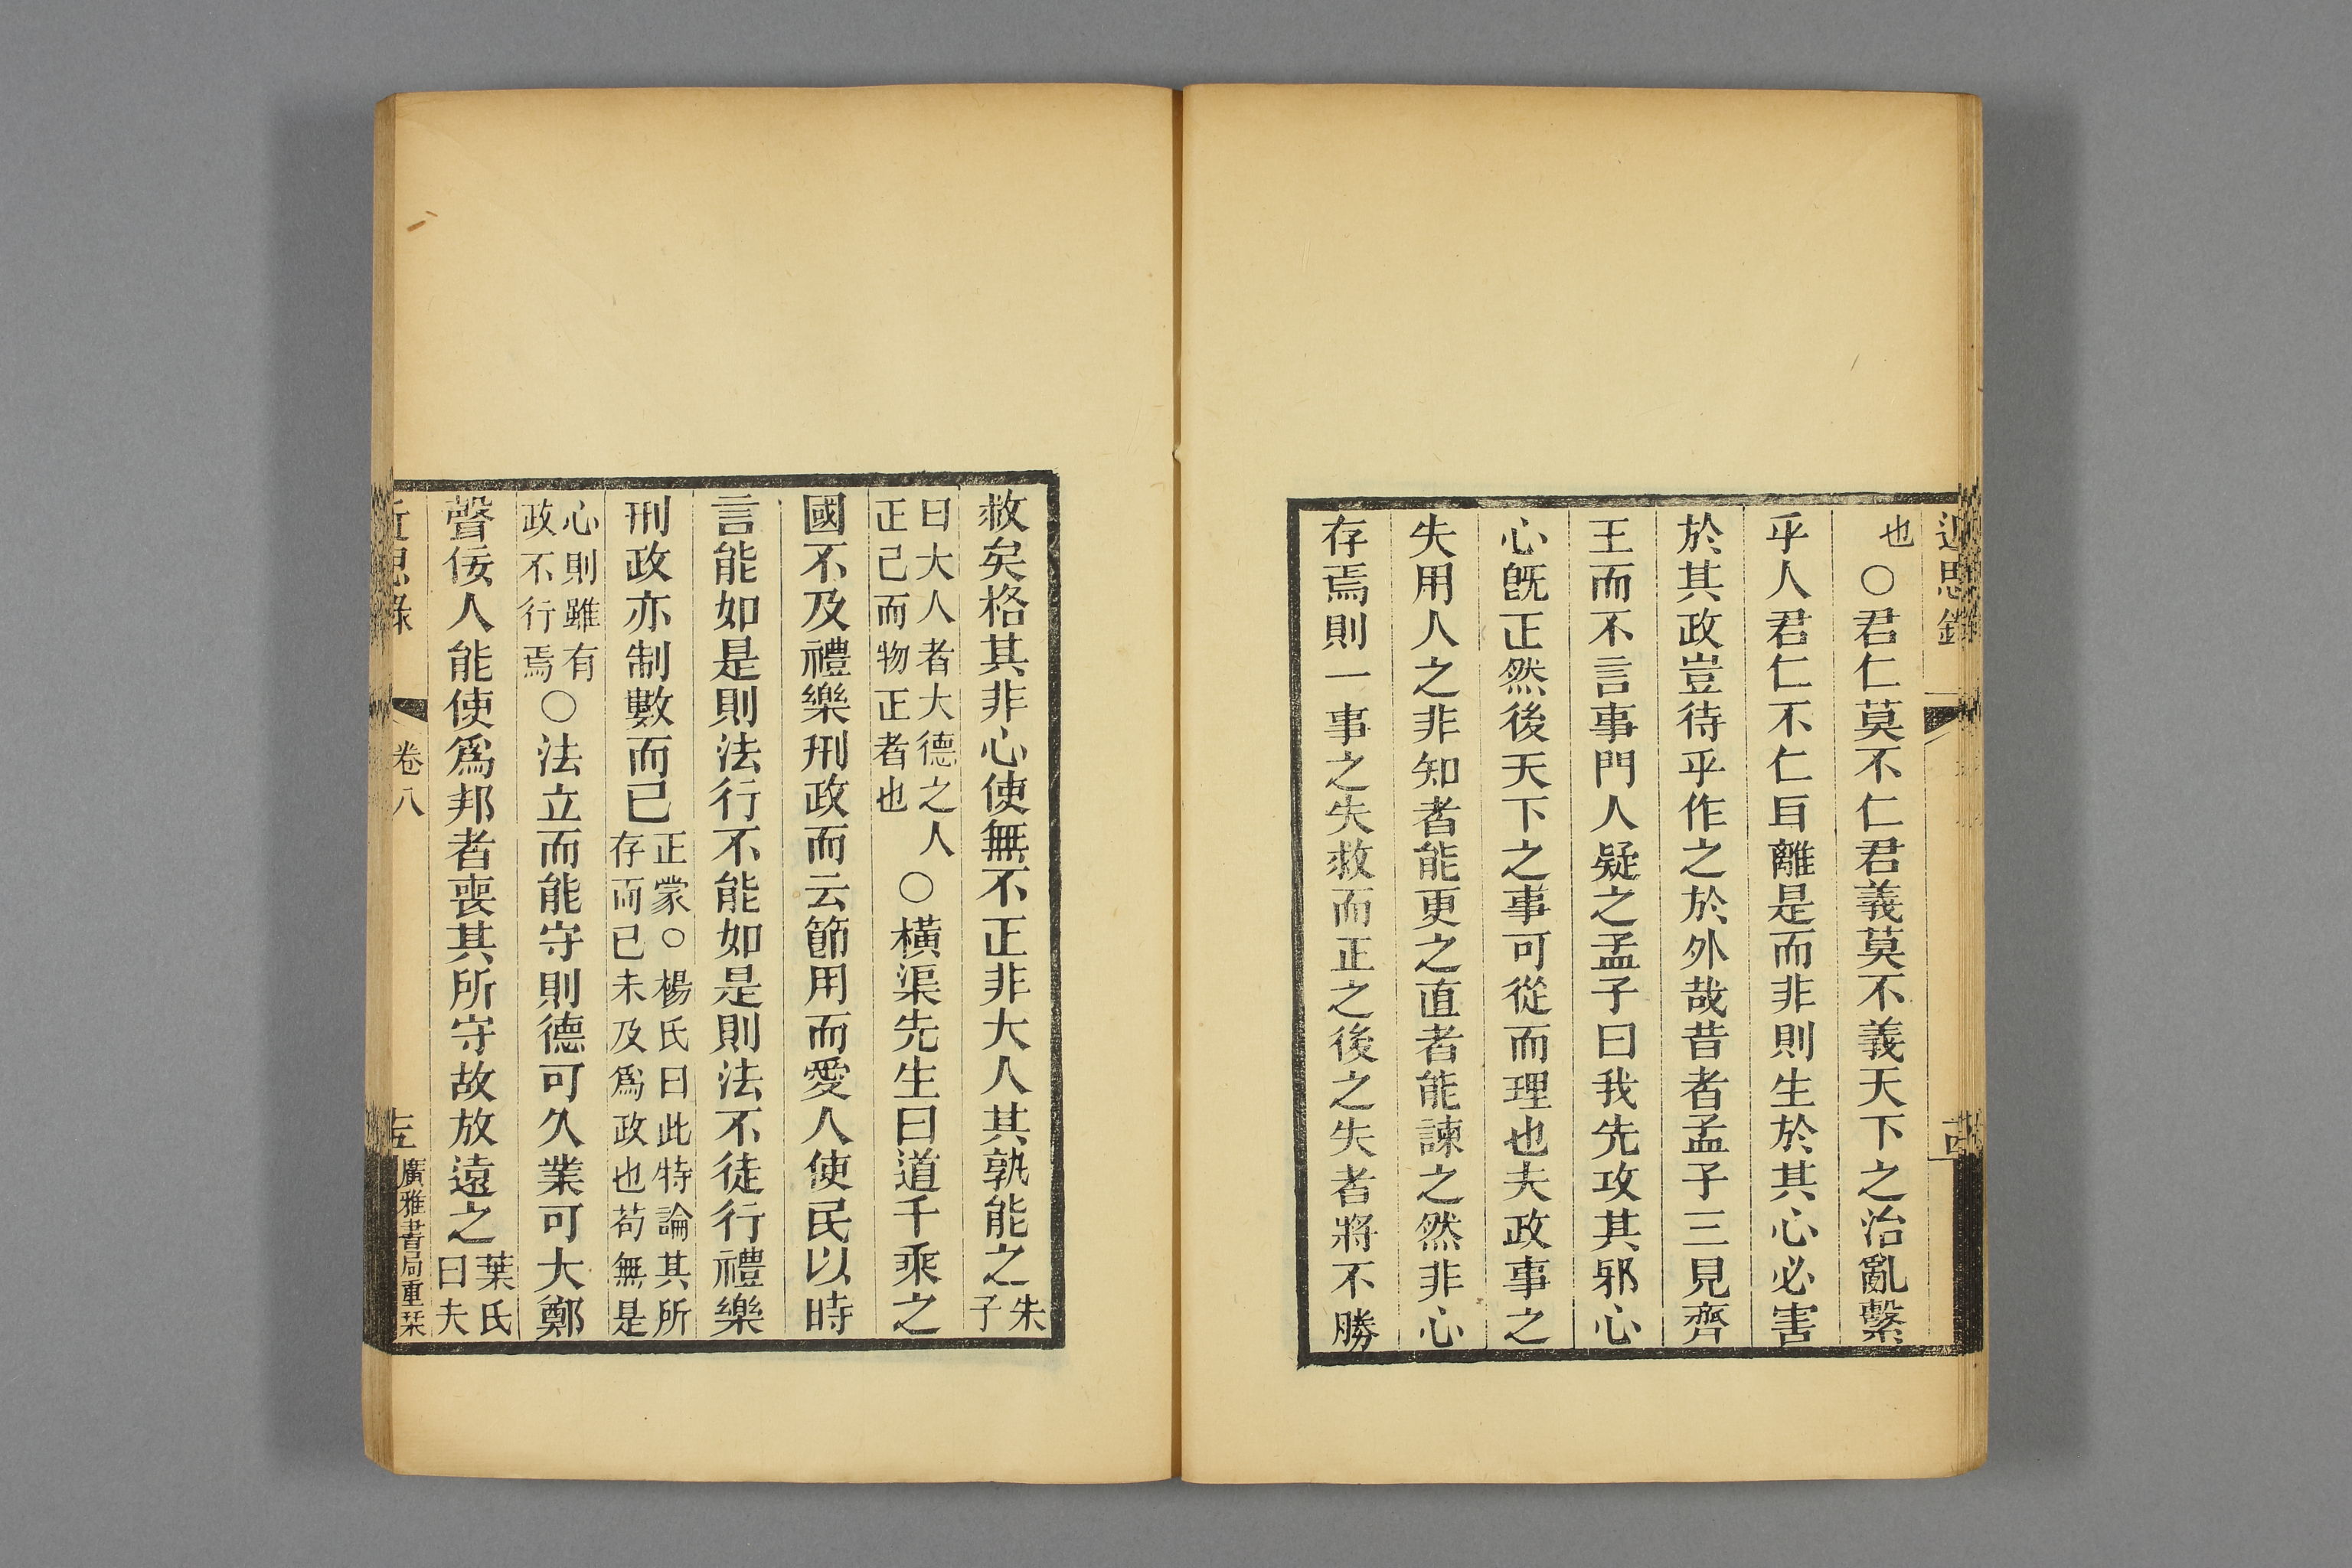 近思錄
也○君仁莫不仁君義莫不義天下之治亂繫
乎人君仁不仁耳離是而非則生於其心必害
於其政豈待乎作之於外哉昔者孟子三見齊
王而不言事門人疑之孟子曰我先攻其邪心
心旣正然後天下之事可從而理也夫政事之
失用人之非知者能更之直者能諫之然非心
存焉則一事之失救而正之後之失者將不勝
救矣格其非心使無不正非大人其孰能之朱子
曰大人者大德之人正己而物正者也○橫渠先生曰道千乘之
國不及禮樂刑政而云節用而愛人使民以時
言能如是則法行不能如是則法不徒行禮樂
刑政亦制數而已正蒙○楊氏曰此特論其所存而已未及爲政也茍無是
心則雖有政不行焉○法立而能守則德可久業可大鄭
聲佞人能使爲邦者喪其所守故放遠之葉氏曰夫
近思錄 卷八 廣雅書局重栞